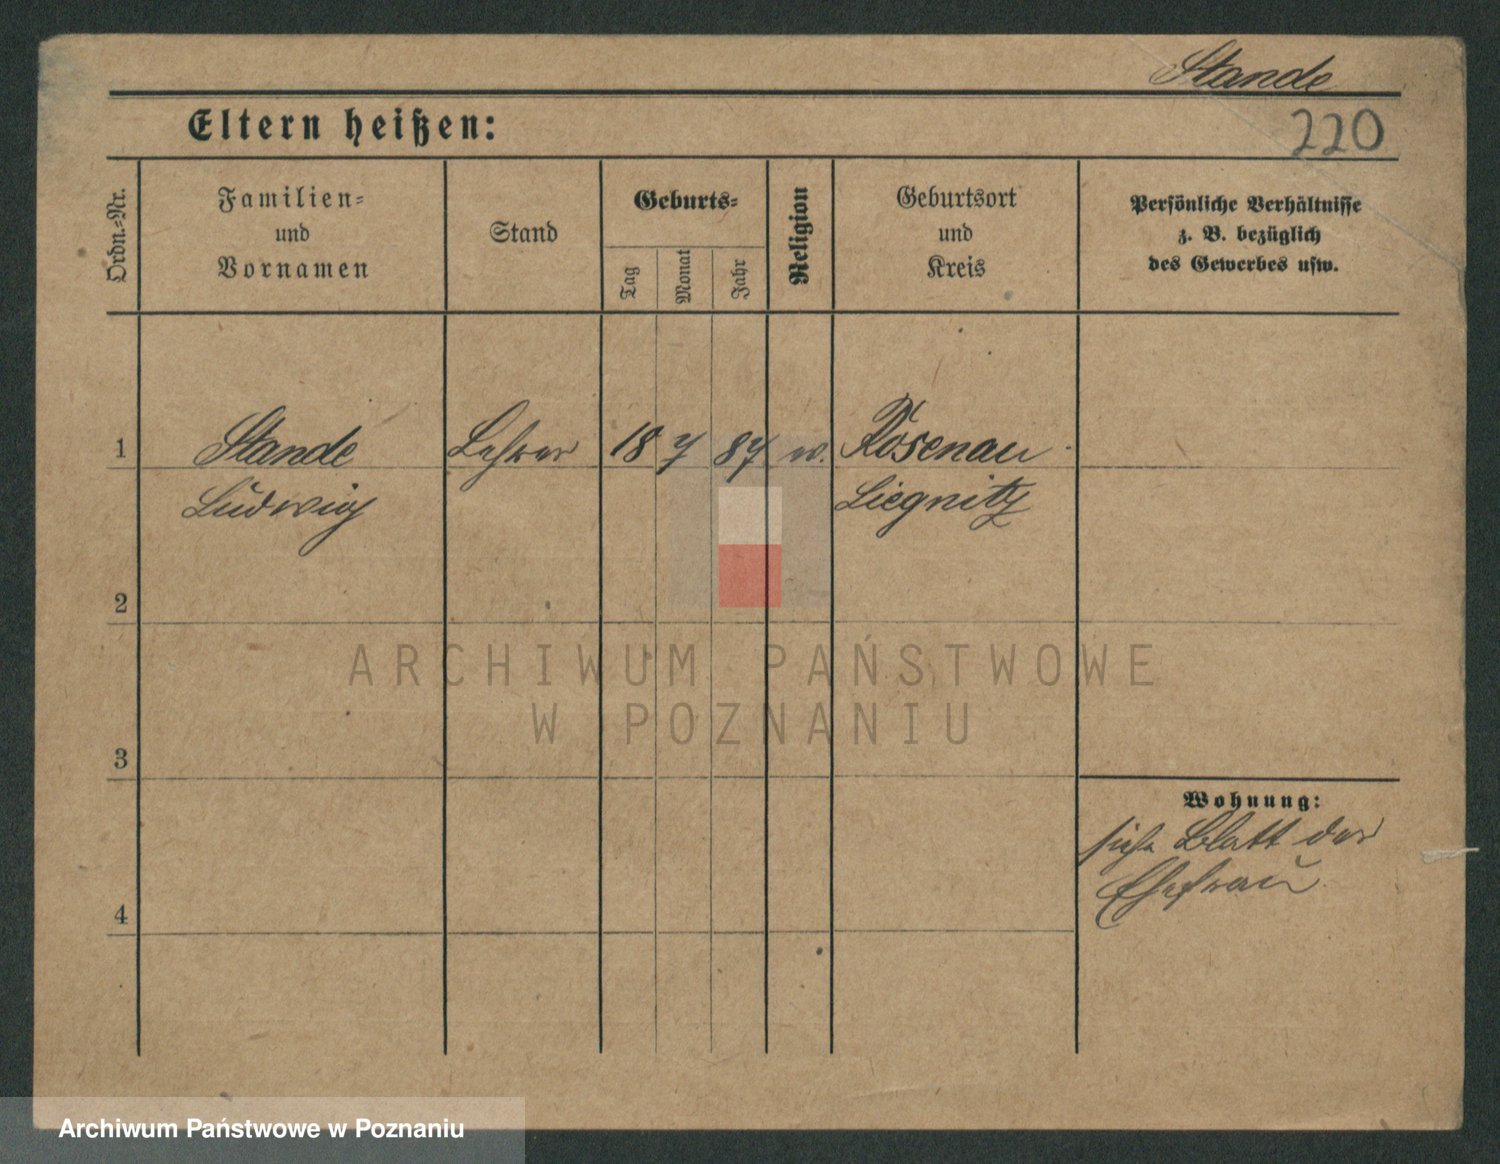 Stande
220
Eltern heißen:
Ordn.-Nr.
Familien-
und
Vornamen
Stand
Geburts-
Tag
Monat
Jahr
Religion
Geburtsort
und
Kreis
Persönliche Verhältnisse
z. B. bezüglich
des Gewerbes usw.
1
Stande
Lehrer
18
7
87
Rosenau
Ludwig
Liegnitz
2
ARCHIWUM PAŃSTWOWE
W POZNANIU
3
Wohnung:
siehe Blatt der
Ehefrau
4
Archiwum Państwowe w Poznaniu